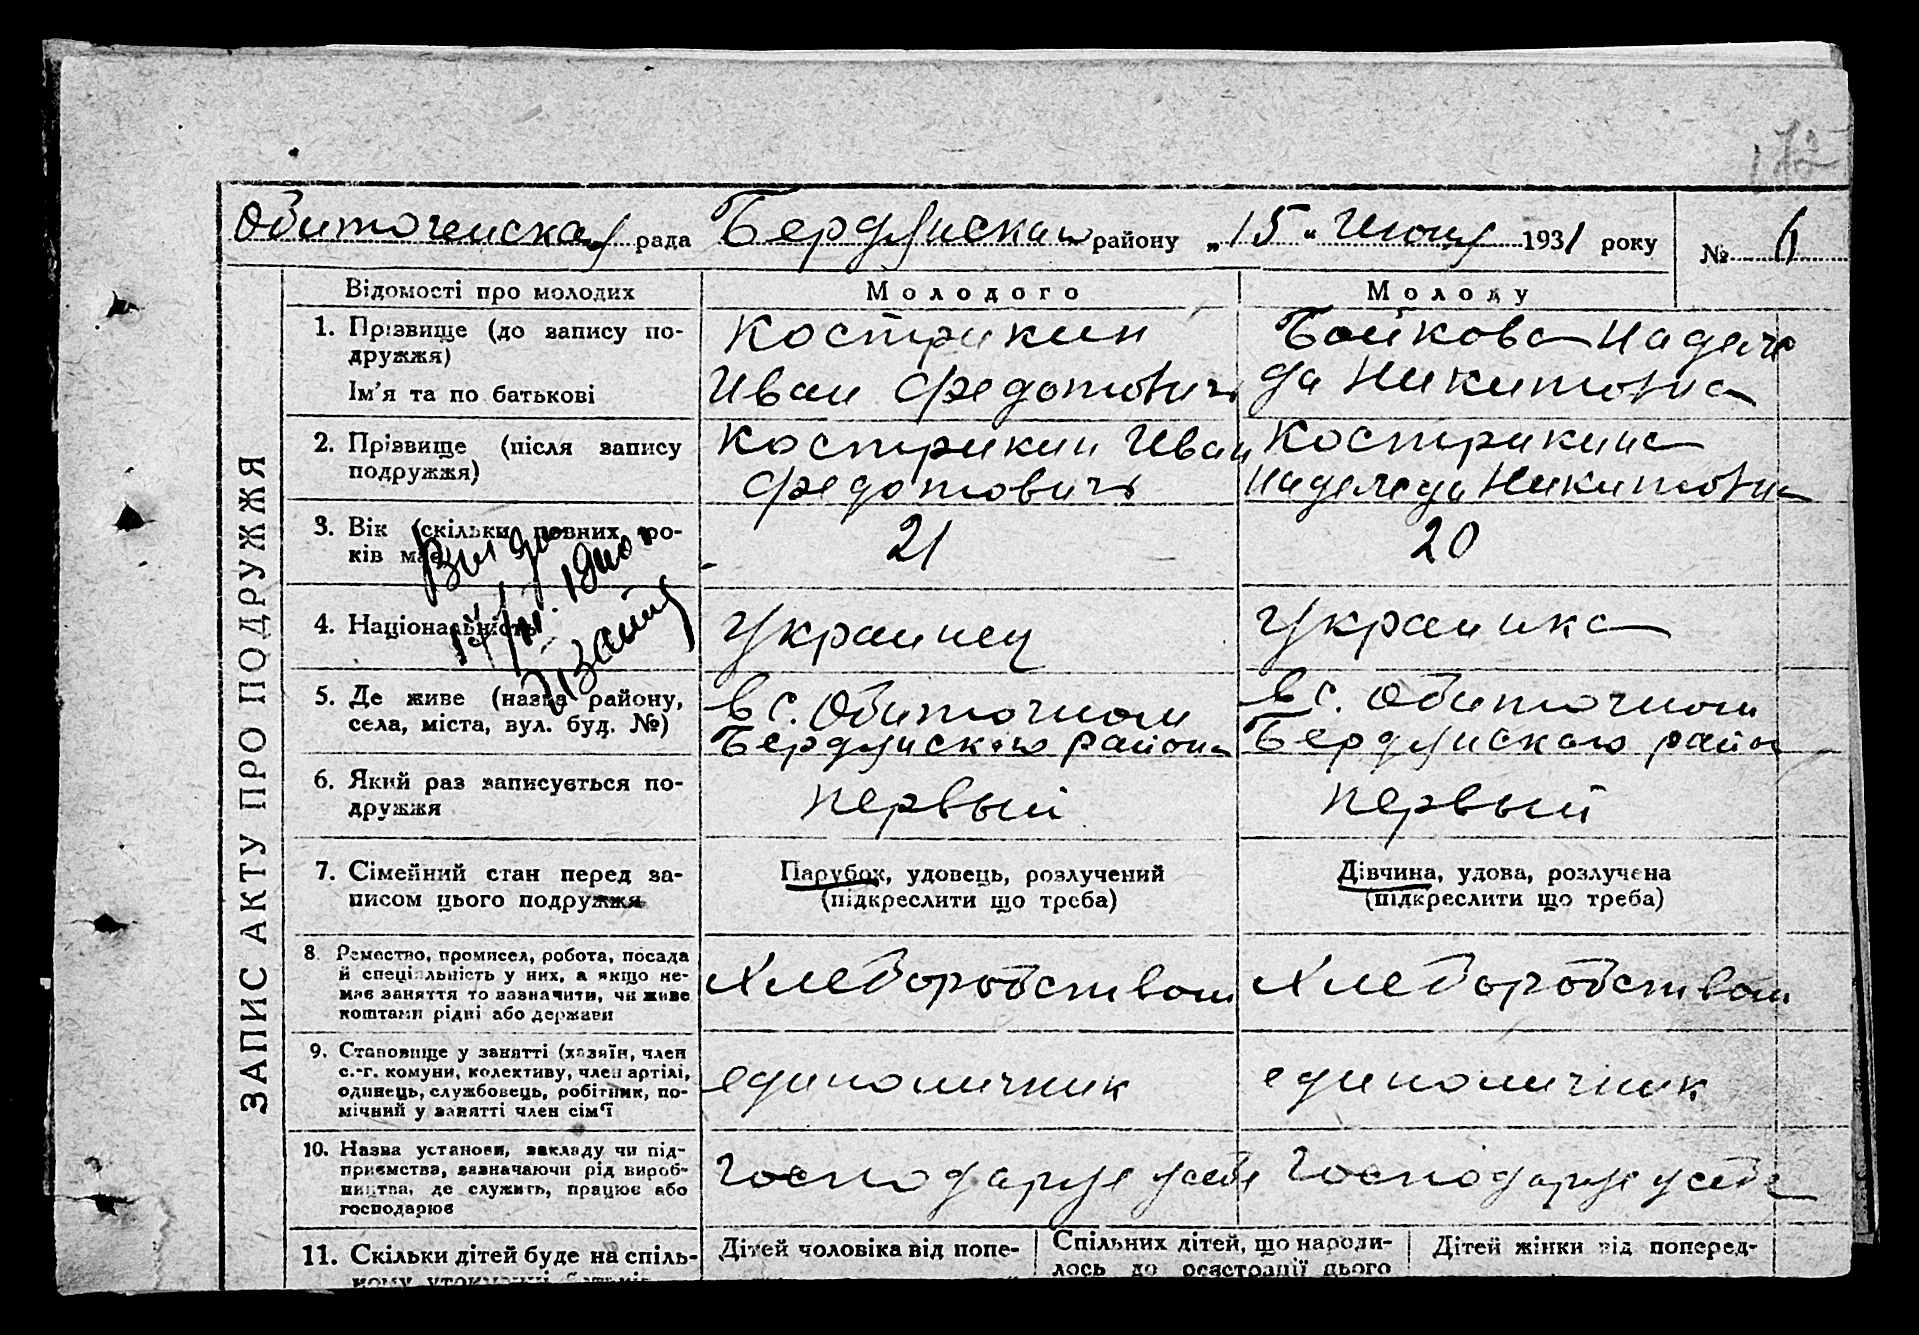 Обиточенская рада Бердянскаго району „15" Июня 1931 року № 6
ЗАПИС АКТУ ПРО ПОДРУЖЖЯ
Відомості про молодих
Молодого
Молоду
1. Прізвище (до запису по-
дружжя)
Ім'я та по батькові
Кострикин
Иван Федотовичъ
Бойкова Надеж
да Никитовна
2. Прізвище (після запису
подружжя)
Кострикин Иван
Федотовичъ
Кострикина
Надежда Никитовна
3. Вік (скільки повних ро-
ків має)
21
20
4. Національність
Украинец
Украинка
5. Де живе (назва району,
села, міста, вул. буд. №)
в с. Обиточном
Бердянскаго района
в с. Обиточном
Бердянскаго райо
6. Який раз записується по-
дружжя
первый
первый
7. Сімейний стан перед за-
писом цього подружжя
Парубок, удовець, розлучений
(підкреслити що треба)
Дівчина, удова, розлучена
(підкреслити що треба)
8. Ремество, промисел, робота, посада
й спеціяльність у них, а якщо не-
має заняття то зазначити, чи живе
коштами рідні або держави
Хлеборобством
Хлеборобством
9. Становище у занятті (хазяїн, член
с.-г. комуни, колективу, член артілі,
одинець, службовець, робітник, по-
мічний у занятті член сім'ї
единоличник
единоличник
10. Назва установи, закладу чи під-
приємства, зазначаючи рід вироб-
ництва, де служить, працює або
господарює
Господарує у себе
Господарує у себе
11. Скільки дітей буде на спіль-
ному утриманні батьків
Дітей чоловіка від попе-
Спільних дітей, що народи-
лось до реєстрації цього
Дітей жінки від поперед-